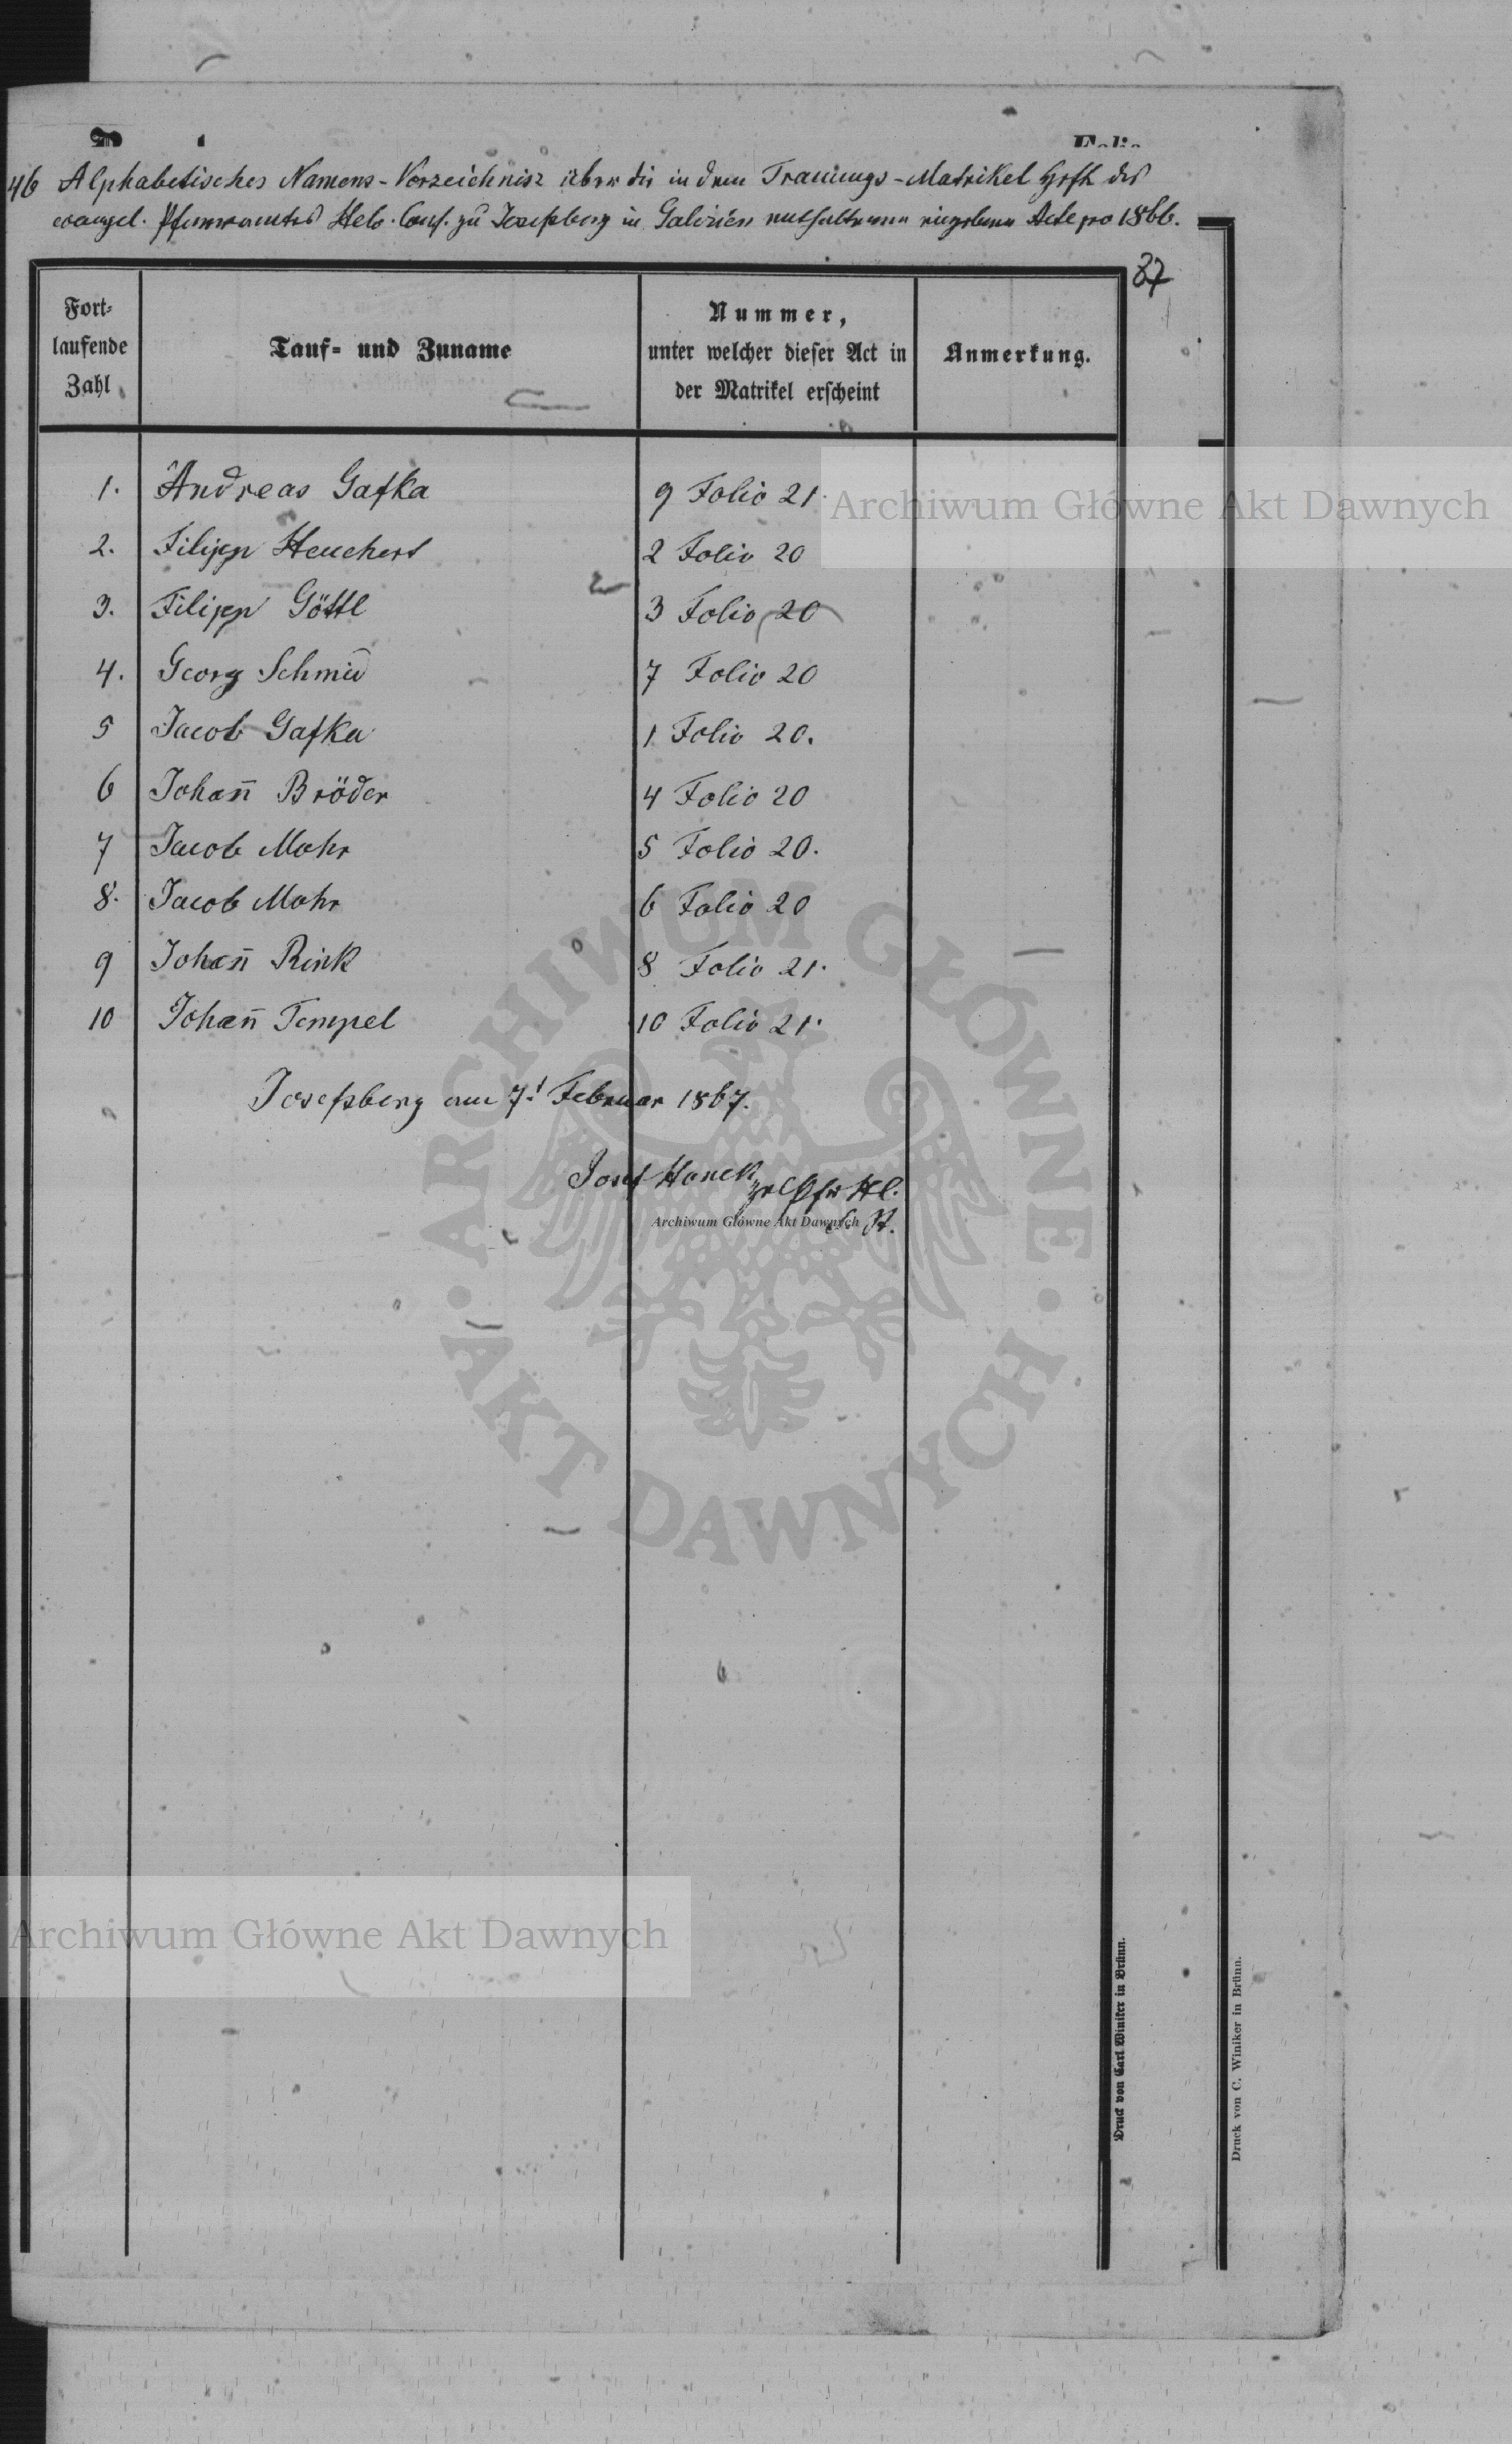 46 Alphabetisches Namens-Verzeichnisz über die in dem Trauungs-Matrikel Hefte des
evangel. Pfarramtes Helv. Conf. zu Josefsberg in Galizien enthaltenen Acte pro 1866.
37
Fort-
laufende
Zahl
Tauf- und Zuname
Nummer,
unter welcher dieser Act in
der Matrikel erscheint
Anmerkung.
1. Andreas Gafka 9 Folio 21.
2. Filipp Heuchert 2 Folio 20
3. Filipp Göttl 3 Folio 20
4. Georg Schmid 7 Folio 20
5 Jacob Gafka 1 Folio 20.
6 Johan̄ Bröder 4 Folio 20
7 Jacob Mohr 5 Folio 20.
8. Jacob Mohr 6 Folio 20
9 Johan̄ Rink 8 Folio 21.
10 Johan̄ Tempel 10 Folio 21.
Josefsberg am 7. Februar 1867.
Josef Hanek
Archiwum Główne Akt Dawnych
Archiwum Główne Akt Dawnych
ARCHIWUM GŁÓWNE AKT DAWNYCH
Archiwum Główne Akt Dawnych
Druck von Carl Winiker in Brünn.
Druck von C. Winiker in Brünn.